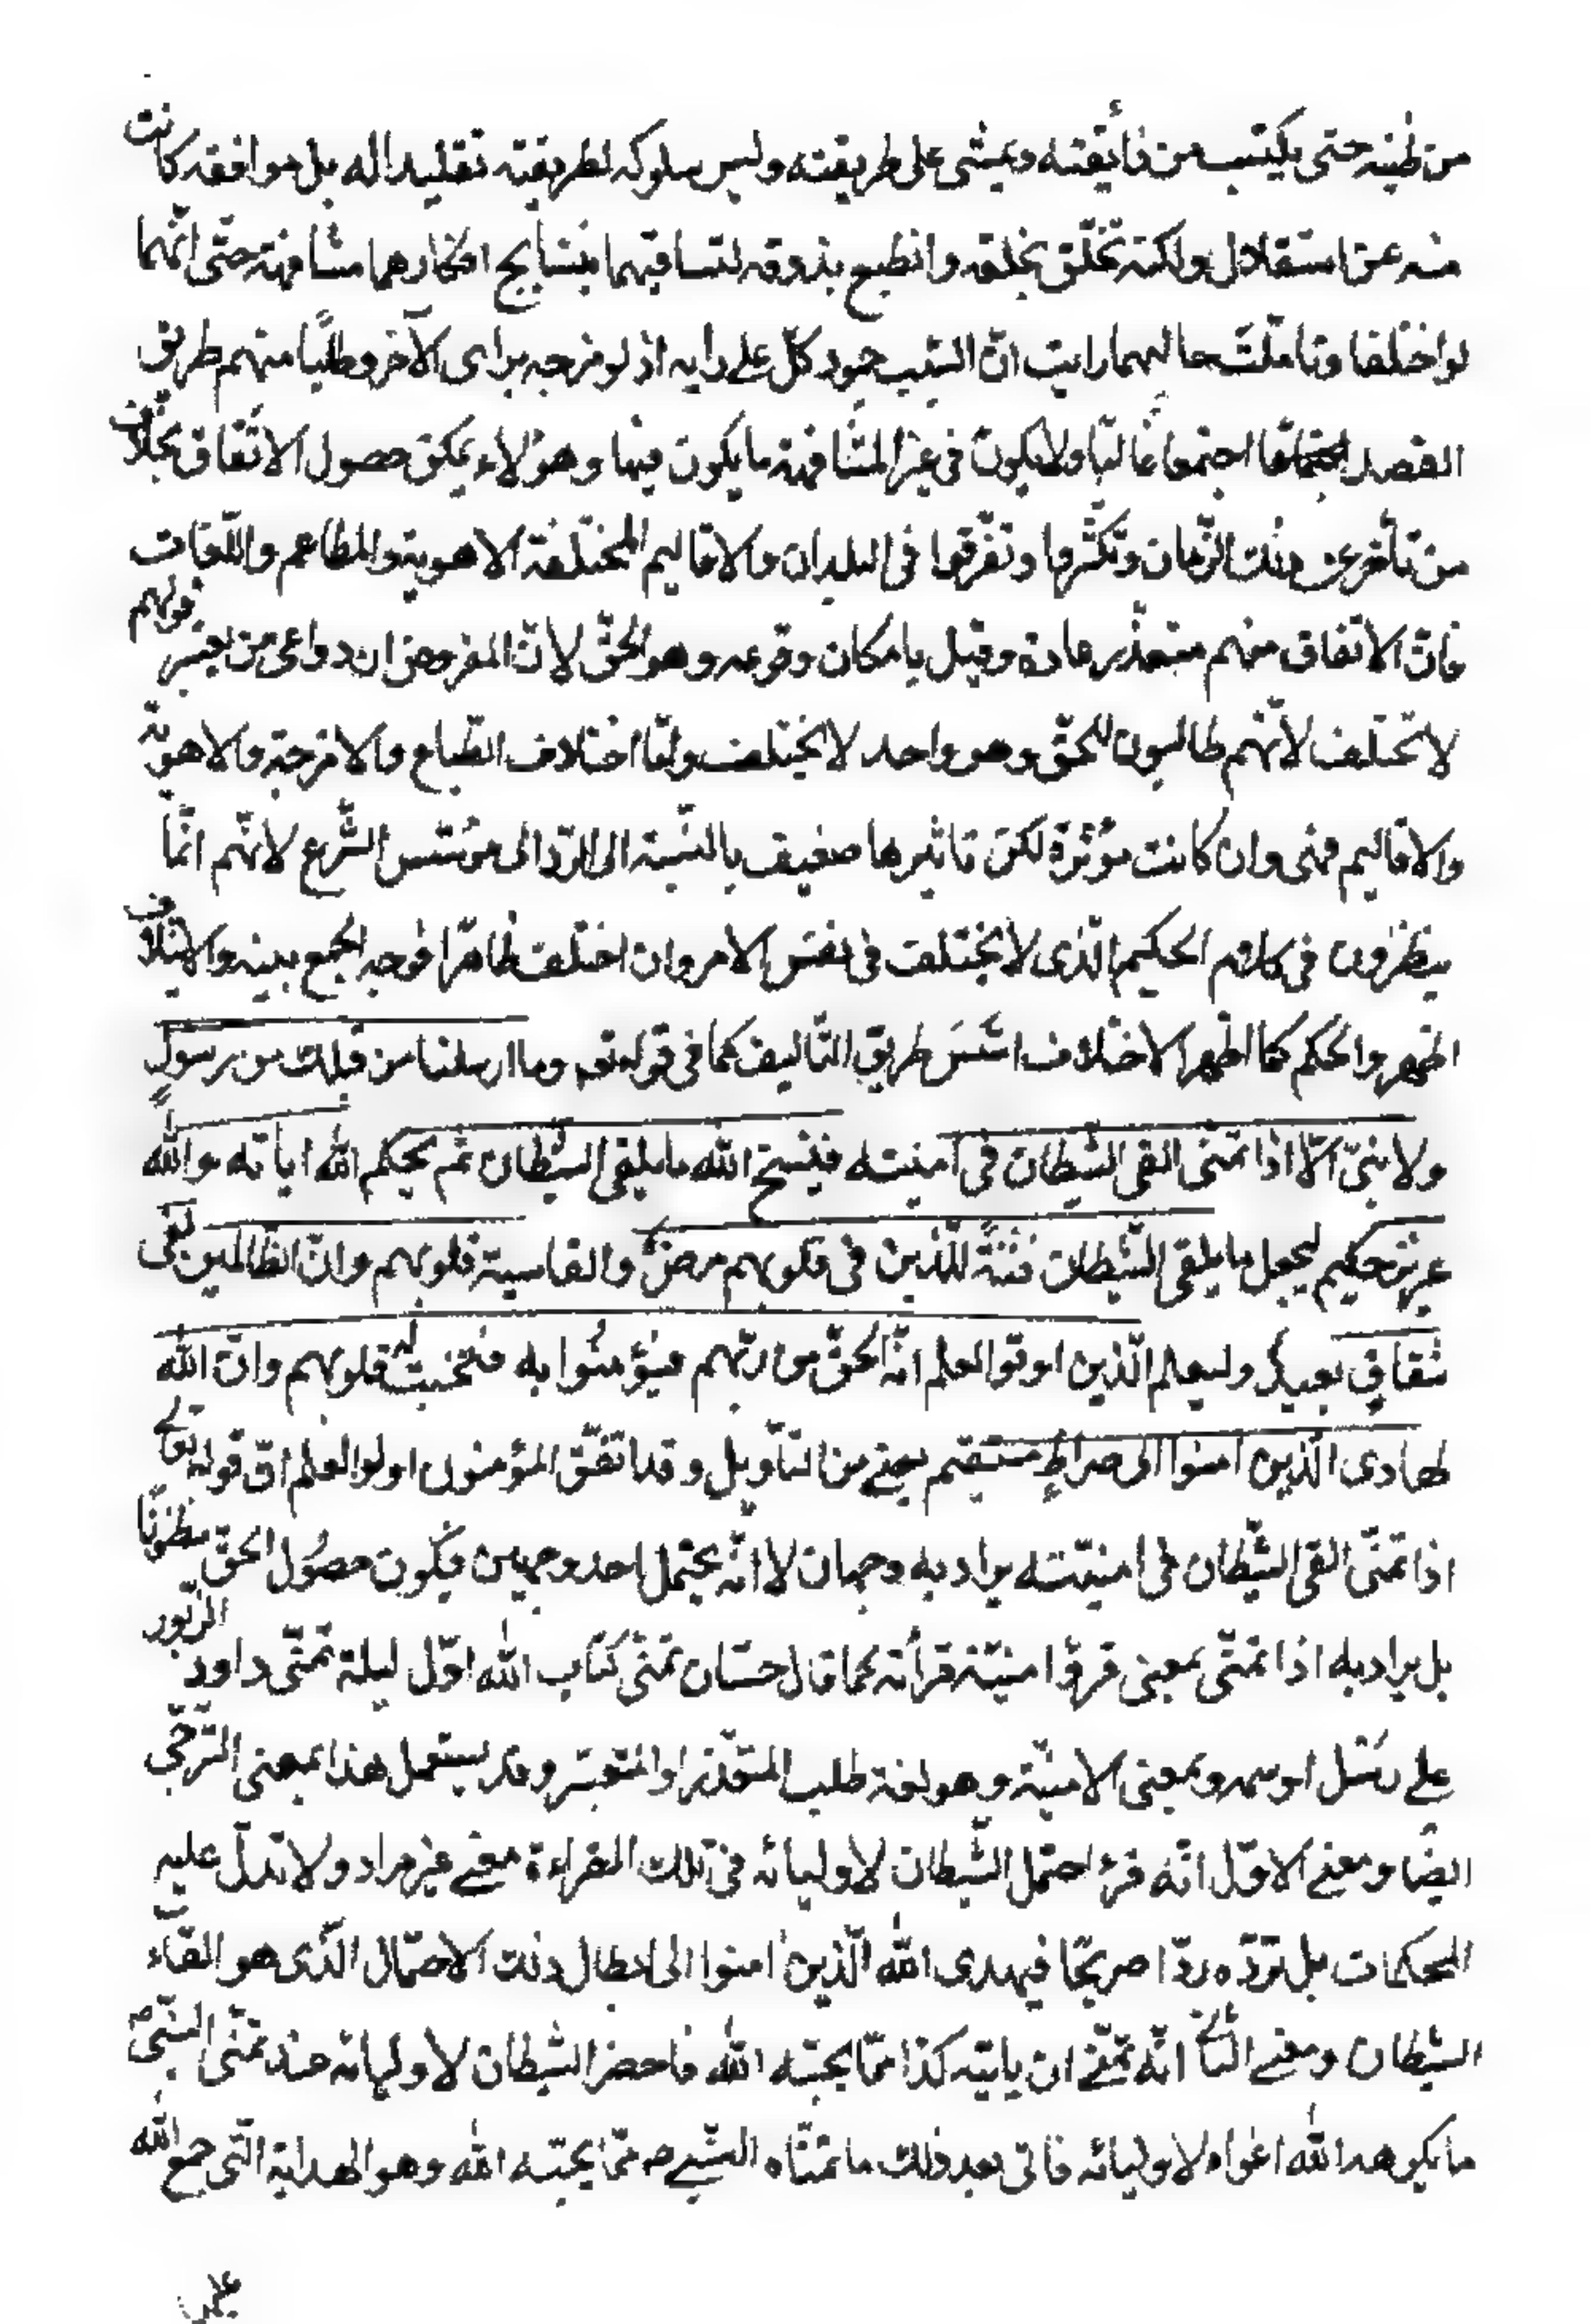 من طينه حتى يكتسب من ذائقته ويمشى على طريقته وليس سلوكه لطريقته تقليدا له بل موافقه كانت
منه عن استقلال ولكنه تخلّق بخلقه وانطبع بذوقه لتساقيهما بنتايج افكارهما مشافهة حتّى انّهما
لو اختلفا وتامّلتَ حاليهما رايت انّ السّبب جمود كلّ على رايه اذ لو مزجه براى الآخر وطلبًا منهم طريق
القصد اجتمعا غالبًا ولا يكون فى غير المشافهة ما يكون فيها وهؤلاء يمكن حصول الاتّفاق بخلاف
من تأخّر عن ذلك الزّمان وتكثّروا وتفرّقوا فى البلدان والاقاليم المختلفة الاهوية والمطاعم واللّغات
فانّ الاتّفاق منهم متعذّر عادة وقيل بامكان وقوعه وهو الحقّ لانّ المفروض ان دواعى من يعتبر قولهم
لا تختلف لأنّهم طالبون للحقّ وهو واحد لا يختلف وامّا اختلاف الطّباع والامزجة والاهوية
والاقاليم فهى وان كانت مؤثّرة لكنّ تاثيرها ضعيف بالنّسبة الى الرّد الى مؤسّس الشّرع لانّهم انّما
ينظرون فى كلام الحكيم الّذى لا يختلف فى نفس الامر وان اختلف ظاهرًا فوجه الجمع بينه والايتلاف
اظهر والحكم كما اظهر الاختلاف اسّسَ طريق التّاليف كما فى قوله تعه وما ارسلنا من قبلك من رسولٍ
ولا نبىّ الّا اذا تمنّى القى الشّيطان فى امنيته فينسخ الله ما يلقى الشّيطان ثم يحكم الله اياته والله
عزيز حكيم ليجعل ما يلقى الشّيطان فتنةً للّذين فى قلوبهم مرضٌ والقاسية قلوبهم وانّ الظالمين لفى
شقاقٍ بعيدٍ وليعلم الّذين اوتوا العلم انّه الحقّ من ربّهم فيؤمنُوا به فتخبت له قلوبهم وانّ الله
لهادى الّذين امنوا الى صراطٍ مستقيم يعنى من التأويل وقد اتفّق المؤمنون اولوا العلم انّ قوله تعالى
اذا تمنّى القى الشّيطان فى امنيّته يراد به وجهان لا انّه يحتمل احد وجهين فيكون حصُول الحقّ مظنونًا
بل يراد به اذا تمنّى بمعنى قرؤ امنيّته قرأته كما قال حسّان تمنّى كتاب الله اوّل ليلة تمنّى داود الزّبور
على رسل او سه وبمعنى الامنيّة وهو لغة طلب المتعذّر او المتعسّر وقد يستعمل هذا بمعنى التّرجّى
ايضًا ومعنى الاوّل انّه قرء احتمل الشّيطان لاوليائه فى تلك القراءة معنى غير مراد ولا تدلّ عليه
المحكمات بل تردّه ردّا صريحًا فيهدى الله الّذين امنوا الى ابطال ذلك الاحتمال الّذى هو القاء
الشّيطان ومعنى الثّانى انّه تمنّى ان ياتيه كذا ممّا يحبّه الله فاحضر الشّيطان لاوليائه عند تمنّى النّبىّ ص
ما يكرهه الله اغواء لاوليائه فاتى بعد ذلك ما تمنّاه النّبى ص ممّا يحبّه الله وهو الهداية الّتى جمع الله
على